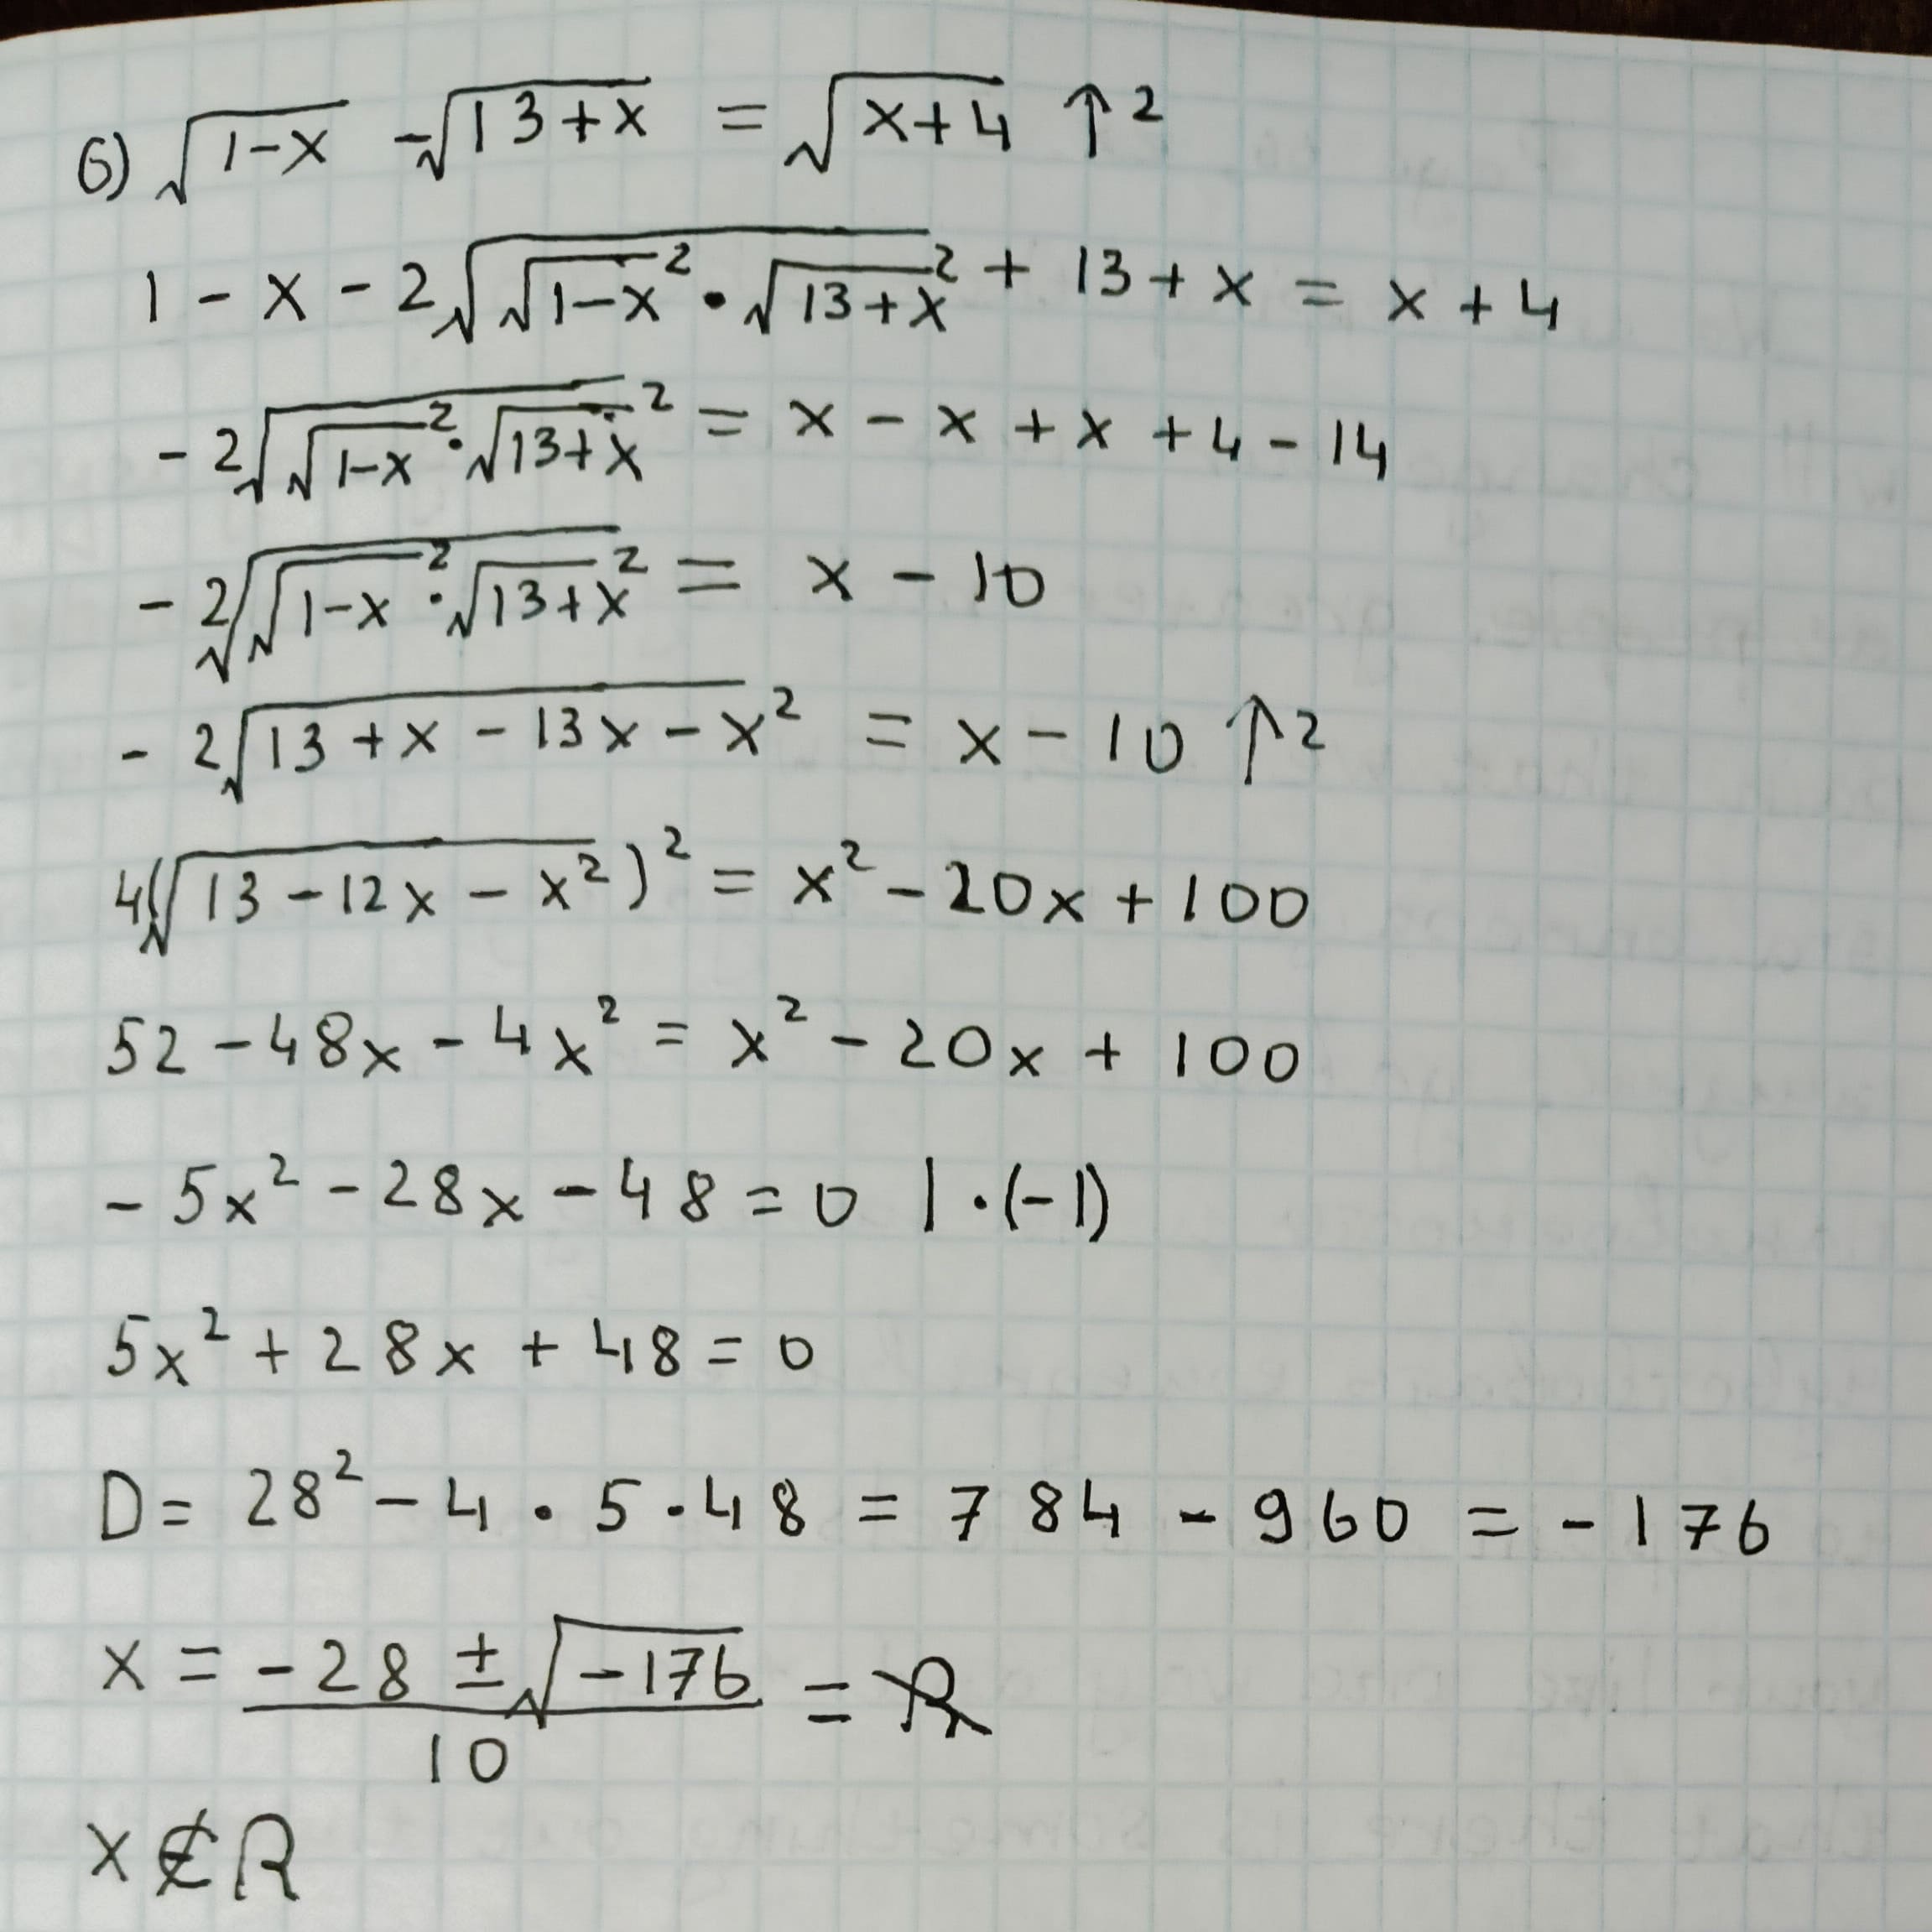 б) √(1-x) - √(13+x) = √(x+4) ↑²
1 - x - 2√(√(1-x)² · √(13+x)²) + 13 + x = x + 4
- 2√(√(1-x)² · √(13+x)²) = x - x + x + 4 - 14
- 2√(√(1-x)² · √(13+x)²) = x - 10
- 2√(13 + x - 13x - x²) = x - 10 ↑²
4(√(13 - 12x - x²))² = x² - 20x + 100
52 - 48x - 4x² = x² - 20x + 100
- 5x² - 28x - 48 = 0 | · (-1)
5x² + 28x + 48 = 0
D = 28² - 4 · 5 · 48 = 784 - 960 = - 176
x = (-28 ± √(-176))/10 =
x ∉ R